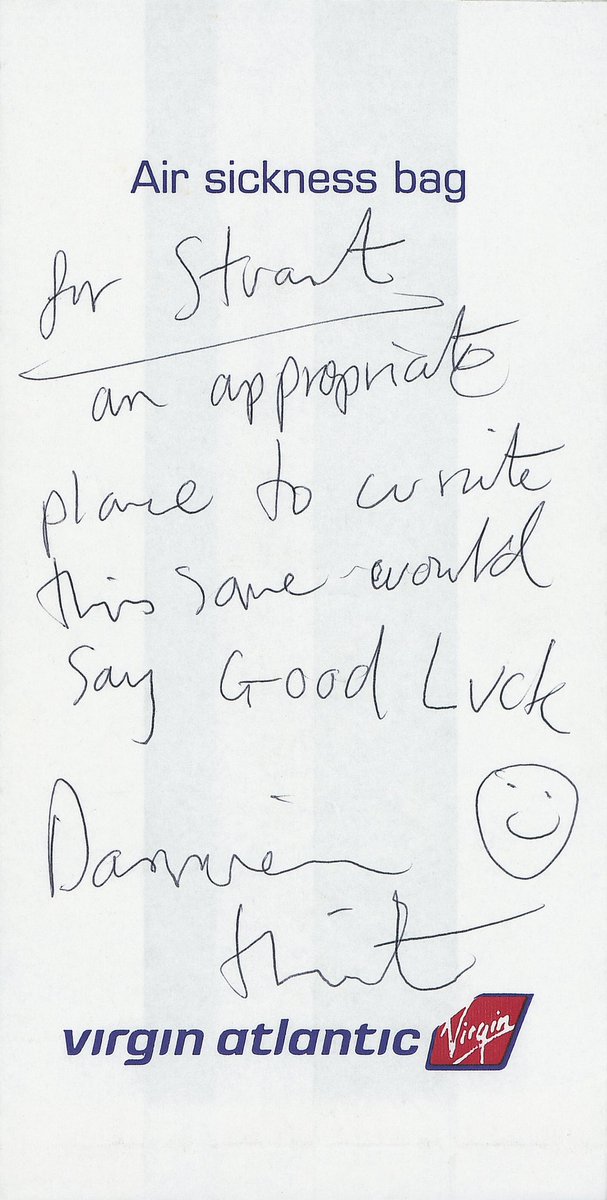 Air sickness bag
for Stuart
an appropriate
place to write
this some would
say Good Luck
Damien
Hirst
virgin atlantic
Virgin